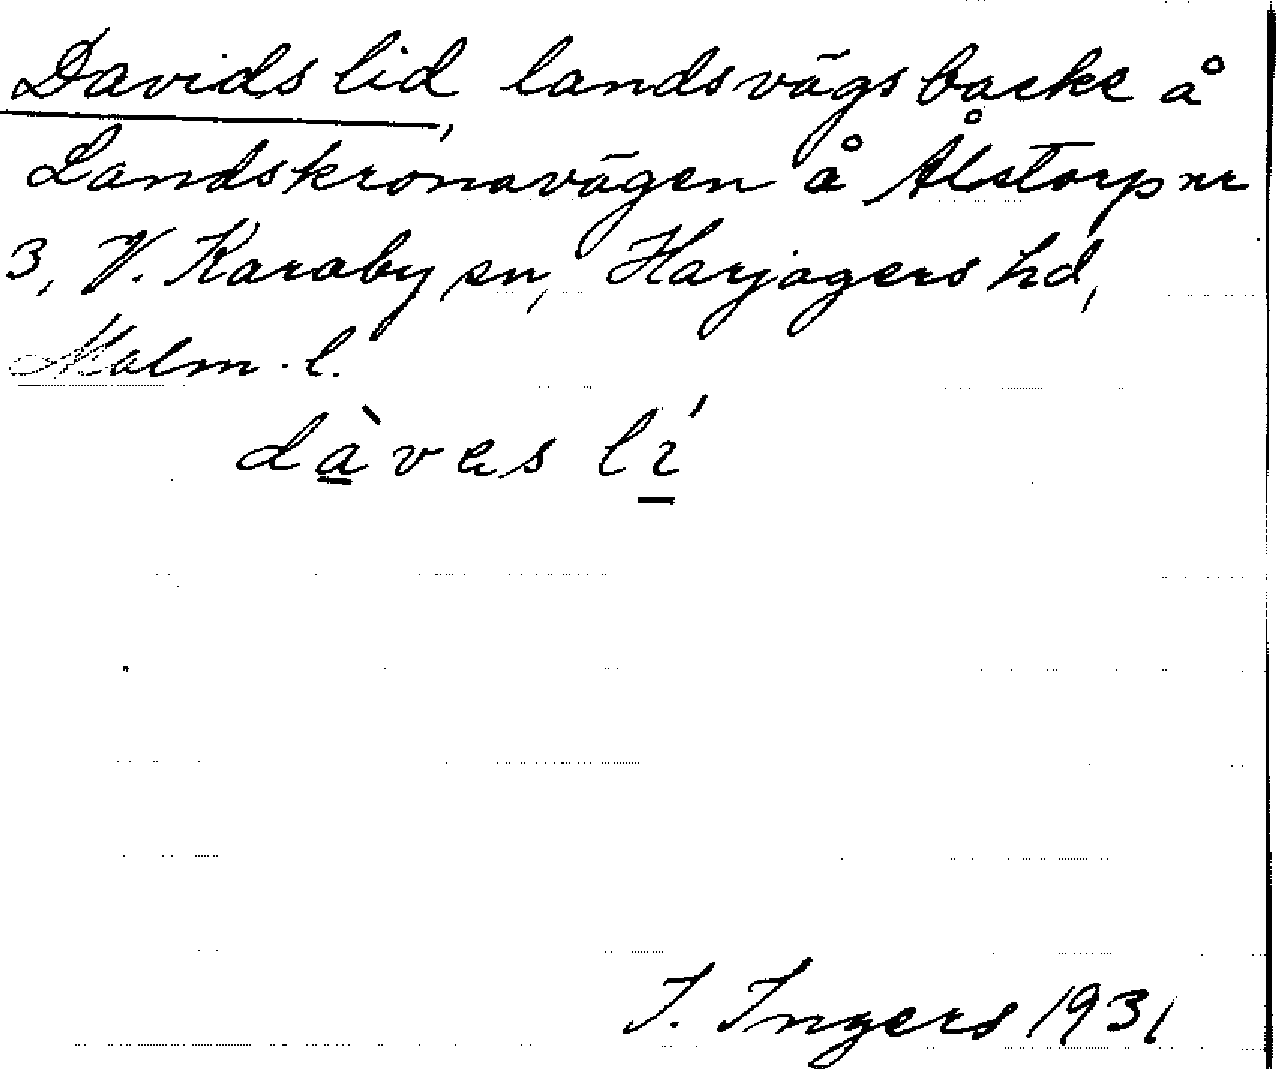 Davids lid, landsvägsbacke å
Landskronavägen å Ålstorp nr
3, V. Karaby sn, Harjagers hd,
Malm. l.
dàves lí
I. Ingers 1931